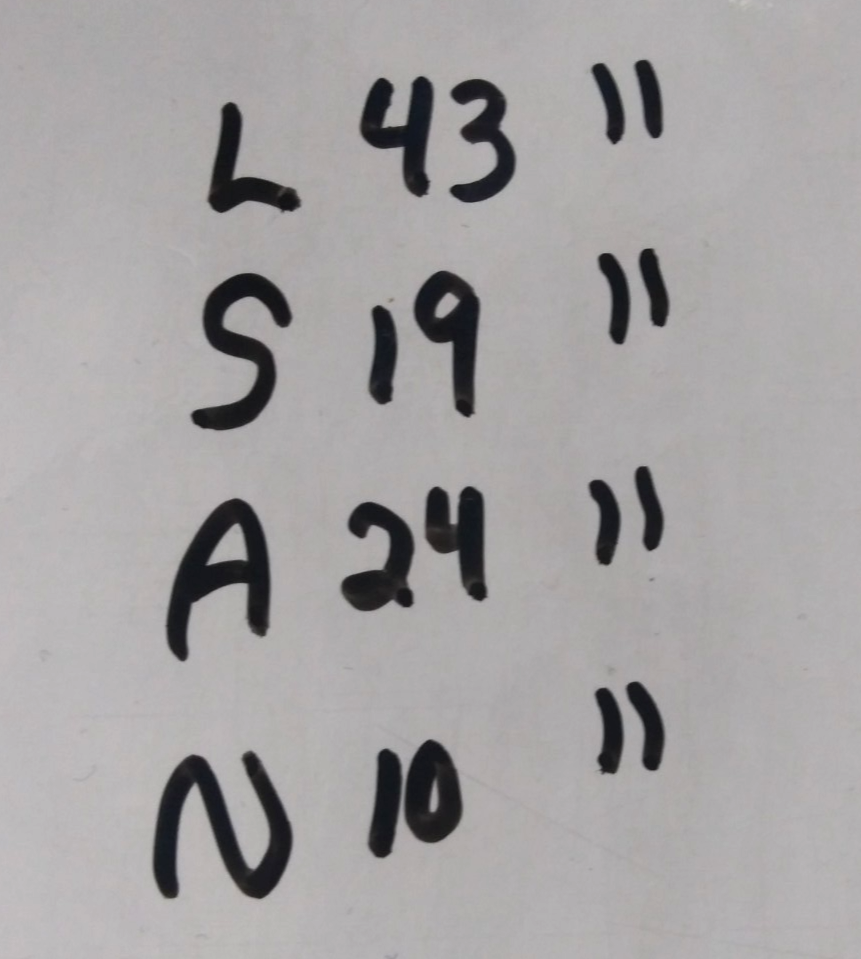 L 43 "
S 19 "
A 24 "
N 10 "